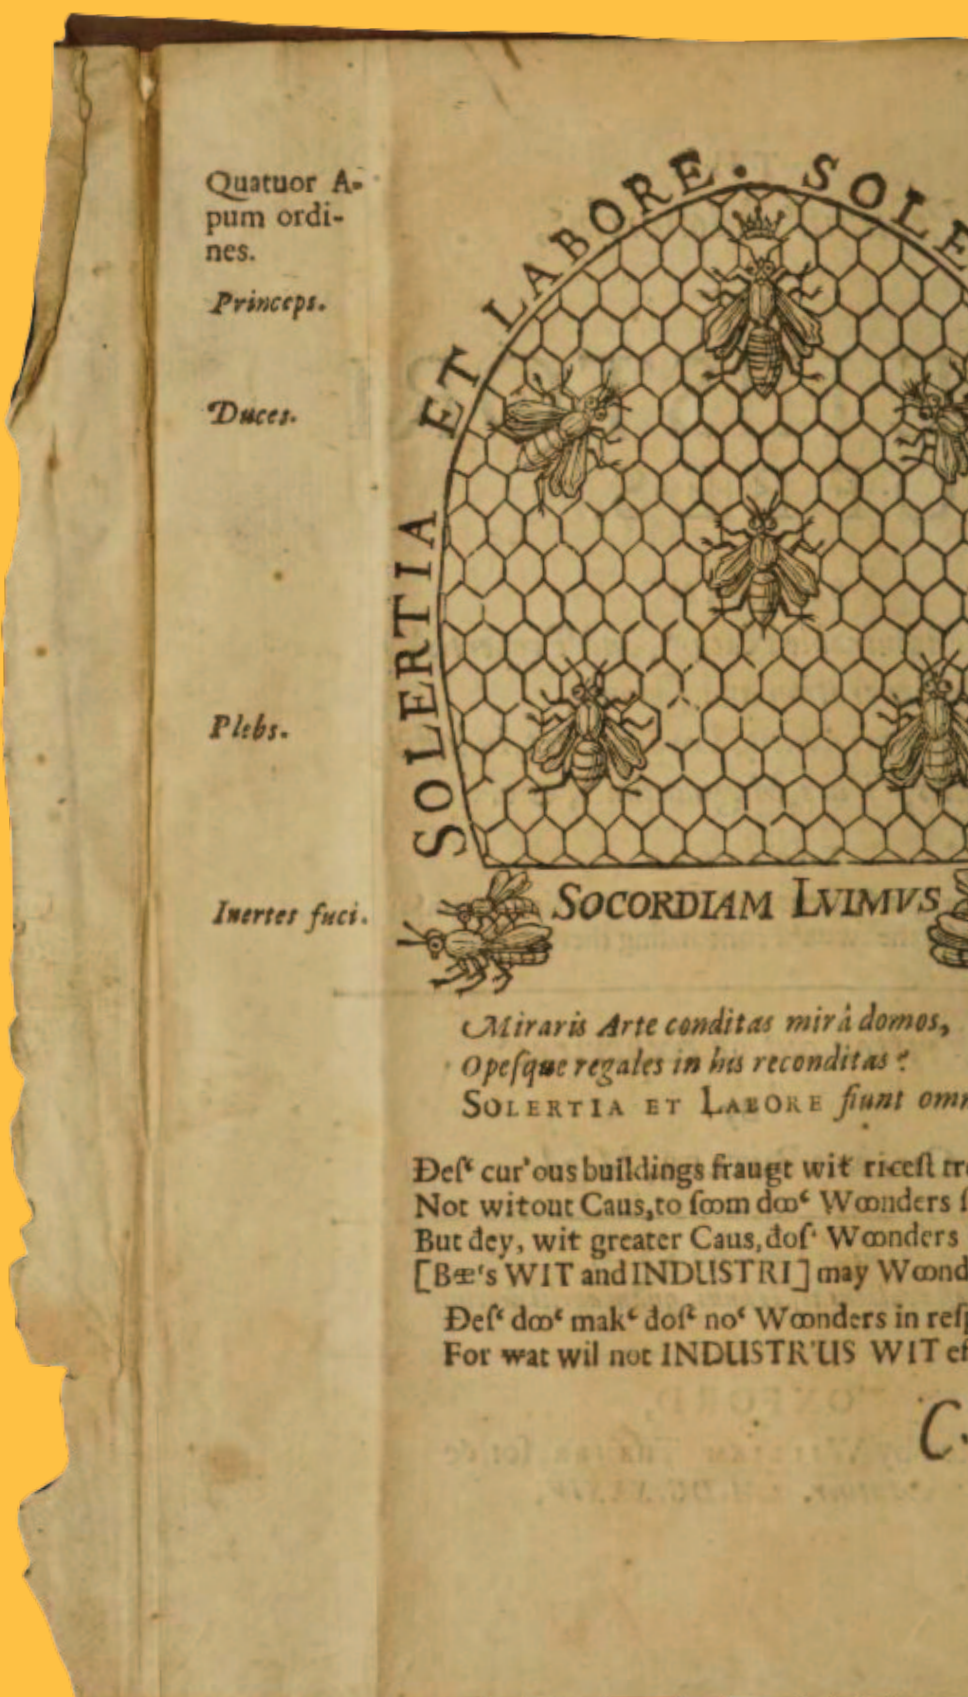 Quatuor A-
pum ordi-
nes.
Princeps.
Duces.
Plebs.
Inertes fuci.
SOLERTIA ET LABORE. SOLE
SOCORDIAM LVIMVS
Miraris Arte conditas mirâ domos,
Opeſque regales in his reconditas?
SOLERTIA ET LABORE fiunt omn
Đeſ‘ cur'ous buildings fraugt wiŧ riceſt tre
Not witout Caus, to ſoom dꝏ‘ Wꝏnders ſ
But đey, wiŧ greater Caus, đoſ‘ Wꝏnders
[Bæ's WIT and INDUSTRI] may Wꝏnd
Đeſ‘ dꝏ‘ mak‘ đoſ‘ no‘ Wꝏnders in reſp
For wat wil not INDUSTR'US WIT ef
C